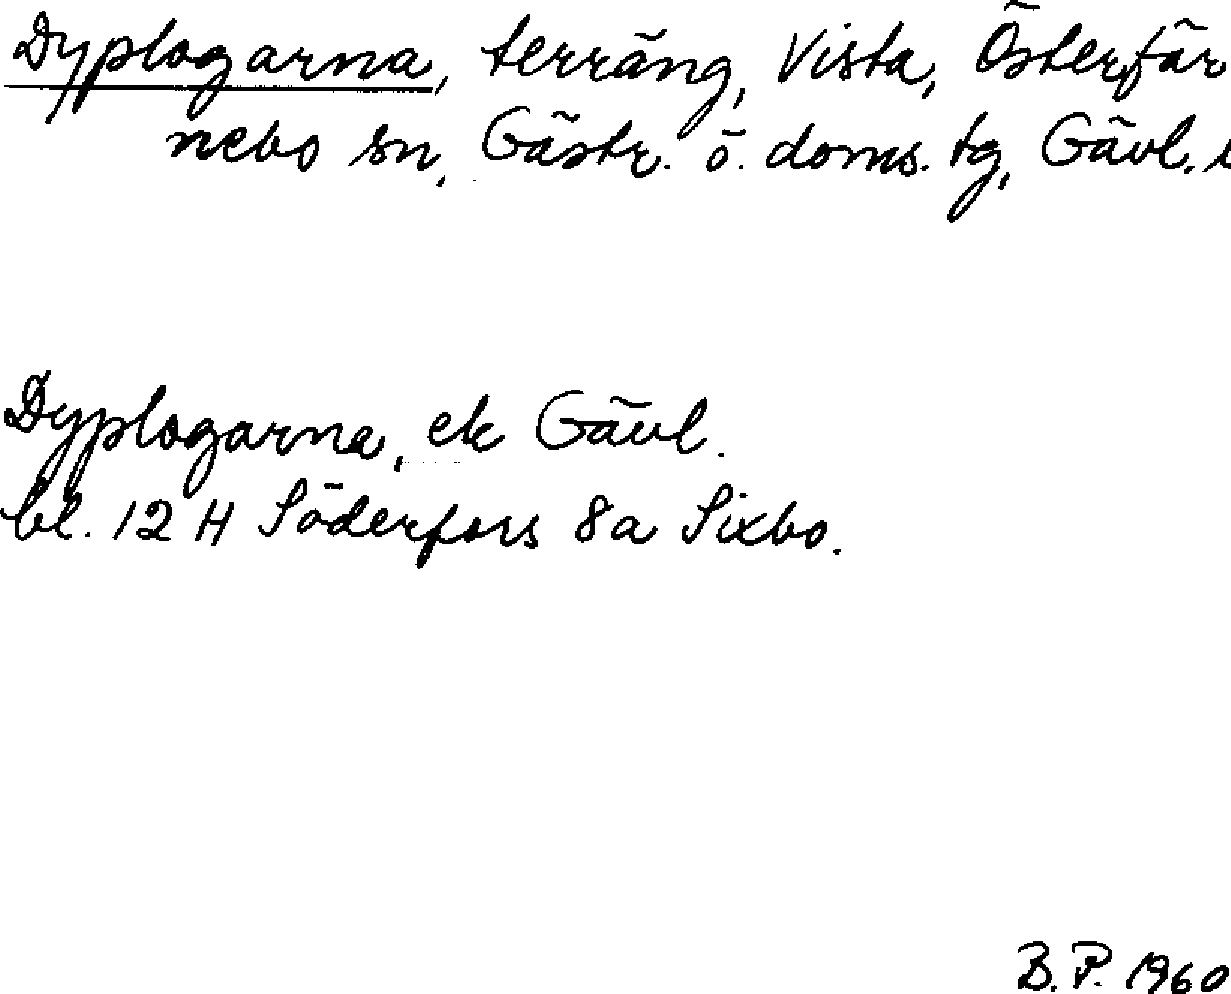 Dyplogarna, terräng, Vista, Österfär
nebo sn, Gästr. ö. doms. tg, Gävl.
Dyplogarna, ek Gävl.
bl. 12 H Söderfors 8a Sixbo.
B. P. 1960